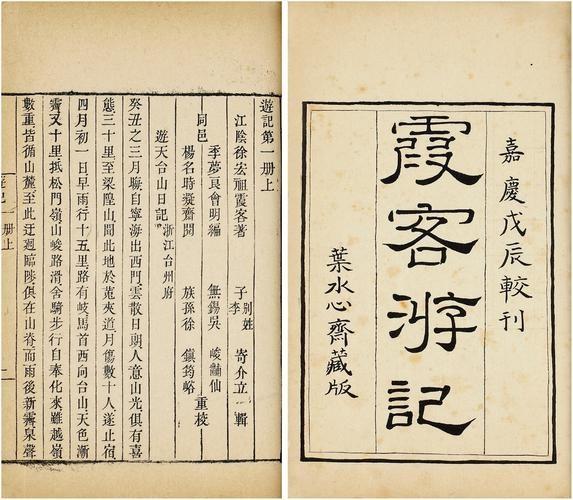 嘉慶戊辰較刊
霞客游記
葉水心齋藏版
遊記第一册上
江陰徐宏祖霞客著 子李別姓寄介立輯
同邑
季夢良會明編 無錫吳峻黼仙
楊名時凝齋閱 族孫徐鎮筠峪
重校
遊天台山日記浙江台州府
癸丑之三月晦自寧海出西門雲散日朗人意山光俱有喜
態三十里至梁隍山聞此地於菟夾道月傷數十人遂止宿
四月初一日早雨行十五里路有岐馬首西向台山天色漸
霽又十里抵松門嶺山峻路滑舍騎步行自奉化來雖越嶺
數重皆循山麓至此迂迴臨陟俱在山脊而雨後新霽泉聲